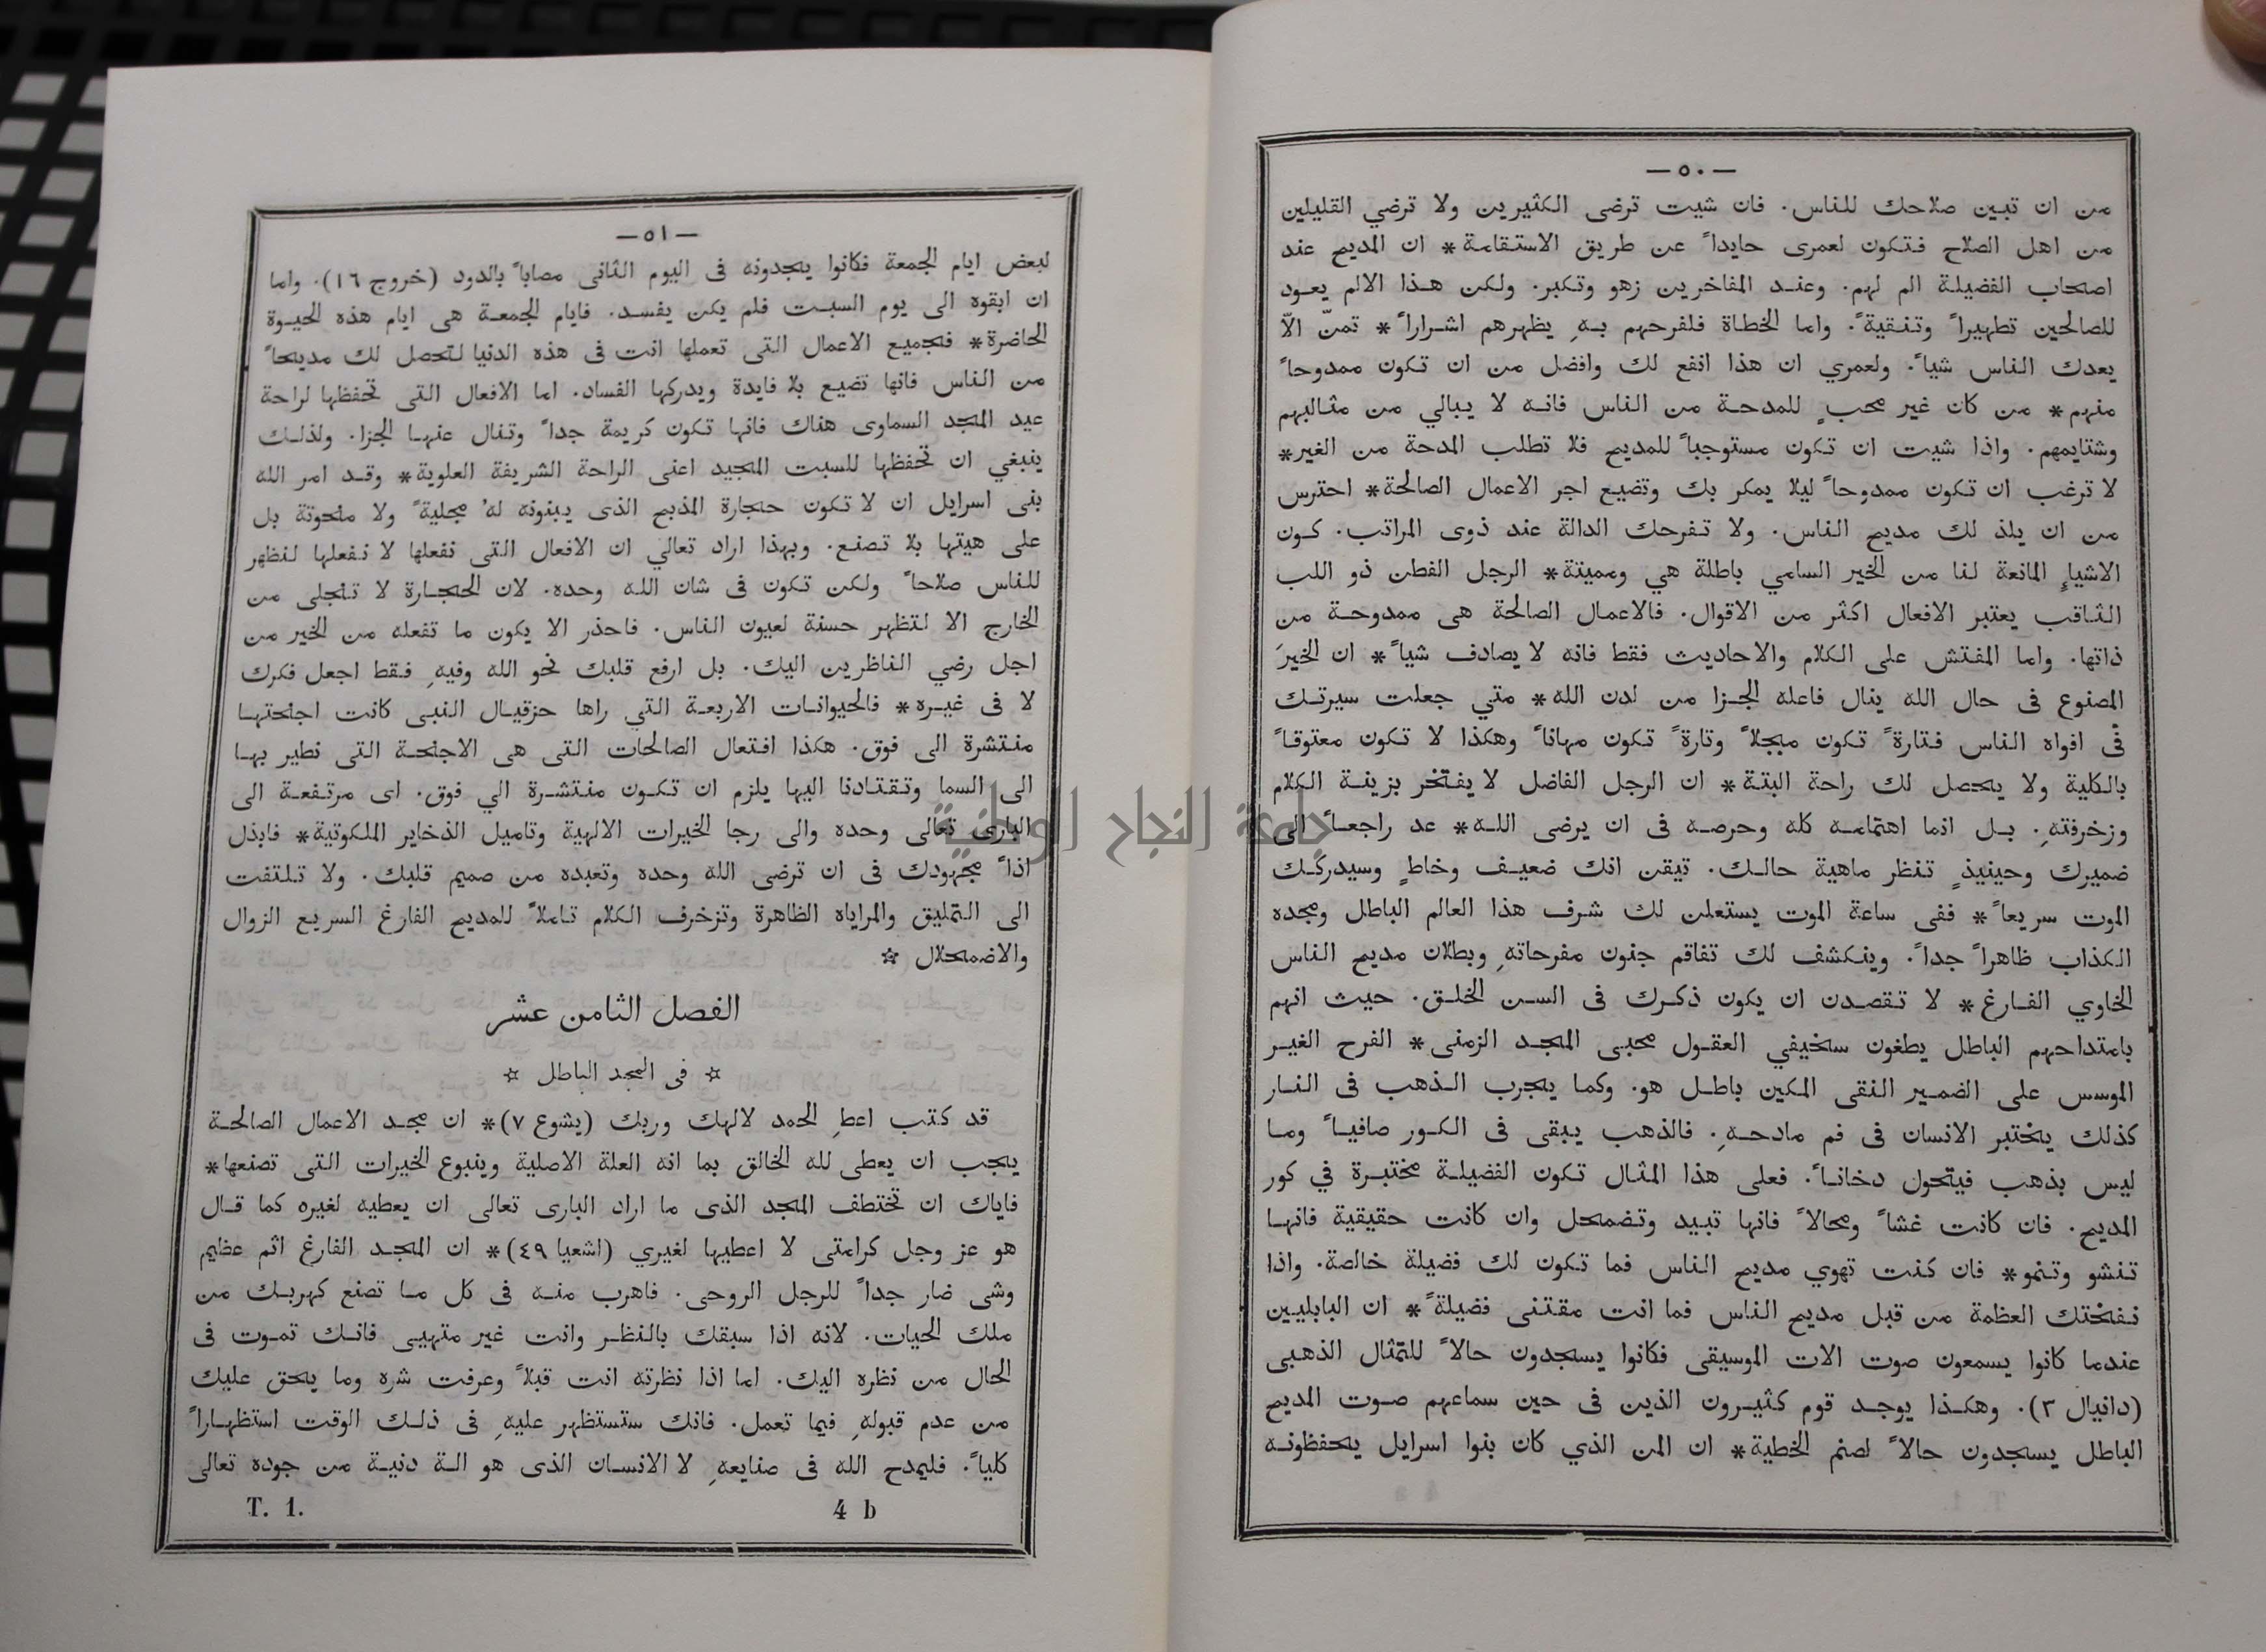 — ٥٠ —
من ان تبين صلاحك للناس. فان شيت ترضى الكثيرين ولا ترضي القليلين
من اهل الصلاح فتكون لعمرى حايداً عن طريق الاستقامة* ان المديح عند
اصحاب الفضيلة الم لهم. وعند المفاخرين زهو وتكبر. ولكن هذا الالم يعود
للصالحين تطهيراً وتنقيةً. واما الخطاة فلفرحهم بهِ يظهرهم اشراراً* تمنّ الاّ
يعدك الناس شياً. ولعمري ان هذا انفع لك وافضل من ان تكون ممدوحاً
منهم* من كان غير محبٍ للمدحة من الناس فانه لا يبالي من مثالبهم
وشتايمهم. واذا شيت ان تكون مستوجباً للمديح فلا تطلب المدحة من الغير*
لا ترغب ان تكون ممدوحاً ليلا يمكر بك وتضيع اجر الاعمال الصالحة* احترس
من ان يلذ لك مديح الناس. ولا تفرحك الدالة عند ذوى المراتب. كون
الاشياءِ المانعة لنا من الخير السامي باطلة هي ومميتة* الرجل الفطن ذو اللب
الثاقب يعتبر الافعال اكثر من الاقوال. فالاعمال الصالحة هى ممدوحة من
ذاتها. واما المفتش على الكلام والاحاديث فقط فانه لا يصادف شياً* ان الخيرَ
المصنوع فى حال الله ينال فاعله الجزا من لدن الله* متي جعلت سيرتك
فى افواه الناس فتارةً تكون مبجلاً وتارةً تكون مهاناً وهكذا لا تكون معتوقاً
بالكلية ولا يحصل لك راحة البتة* ان الرجل الفاضل لا يفتخر بزينة الكلام
وزخرفتهِ. بل انما اهتمامه كله وحرصه فى ان يرضى الله* عد راجعاً الى
ضميرك وحينيذٍ تنظر ماهية حالك. تيقن انك ضعيف وخاطٍ وسيدركك
الموت سريعاً* ففى ساعة الموت يستعلن لك شرف هذا العالم الباطل ومجده
الكذاب ظاهراً جداً. وينكشف لك تفاقم جنون مفرحاتهِ وبطلان مديح الناس
الخاوي الفارغ* لا تقصدن ان يكون ذكرك فى السن الخلق. حيث انهم
بامتداحهم الباطل يطغون سخيفي العقول محبى المجد الزمنى* الفرح الغير
الموسس على الضمير النقى المكين باطل هو. وكما يجرب الذهب فى النار
كذلك يختبر الانسان فى فم مادحهِ. فالذهب يبقى فى الكور صافياً وما
ليس بذهب فيتحول دخاناً. فعلى هذا المثال تكون الفضيلة مختبرة في كور
المديح. فان كانت غشاً ومحالاً فانها تبيد وتضمحل وان كانت حقيقية فانها
تنشو وتنمو* فان كنت تهوي مديح الناس فما تكون لك فضيلة خالصة. واذا
نفختك العظمة من قبل مديح الناس فما انت مقتنى فضيلةً* ان البابليين
عندما كانوا يسمعون صوت الات الموسيقى فكانوا يسجدون حالاً للتمثال الذهبى
(دانيال ٣). وهكذا يوجد قوم كثيرون الذين فى حين سماعهم صوت المديح
الباطل يسجدون حالاً لصنم الخطية* ان المن الذي كان بنوا اسرايل يحفظونه
— ٥١ —
لبعض ايام الجمعة فكانوا يجدونه فى اليوم الثانى مصاباً بالدود (خروج ١٦). واما
ان ابقوه الى يوم السبت فلم يكن يفسد. فايام الجمعة هى ايام هذه الحيوة
الحاضرة* فجميع الاعمال التى تعملها انت فى هذه الدنيا لتحصل لك مديحاً
من الناس فانها تضيع بلا فايدة ويدركها الفساد. اما الافعال التى تحفظها لراحة
عيد المجد السماوى هناك فانها تكون كريمة جداً وتنال عنها الجزا. ولذلك
ينبغي ان تحفظها للسبت المجيد اعنى الراحة الشريفة العلوية* وقد امر الله
بنى اسرايل ان لا تكون حجارة المذبح الذى يبنونه لهُ مجليةً ولا منحوتة بل
على هيتها بلا تصنع. وبهذا اراد تعالي ان الافعال التى نفعلها لا نفعلها لنظهر
للناس صلاحاً ولكن تكون فى شان الله وحده. لان الحجارة لا تنجلى من
الخارج الا لتظهر حسنة لعيون الناس. فاحذر الا يكون ما تفعله من الخير من
اجل رضي الناظرين اليك. بل ارفع قلبك نحو الله وفيهِ فقط اجعل فكرك
لا فى غيره* فالحيوانات الاربعة التي راها حزقيال النبى كانت اجنحتها
منتشرة الى فوق. هكذا افتعال الصالحات التى هى الاجنحة التى نطير بها
الى السما وتقتادنا اليها يلزم ان تكون منتشرة الي فوق. اى مرتفعة الى
البارى تعالى وحده والى رجا الخيرات الالهية وتاميل الذخاير الملكوتية* فابذل
اذاً مجهودك فى ان ترضى الله وحده وتعبده من صميم قلبك. ولا تلتفت
الى التمليق والمراياه الظاهرة وتزخرف الكلام تاملاً للمديح الفارغ السريع الزوال
والاضمحلال ☆
الفصل الثامن عشر
☆ فى المجد الباطل ☆
قد كتب اعطِ الحمد لالهك وربك (يشوع ٧)* ان مجد الاعمال الصالحة
يجب ان يعطى لله الخالق بما انه العلة الاصلية وينبوع الخيرات التى تصنعها*
فاياك ان تختطف المجد الذى ما اراد البارى تعالى ان يعطيه لغيره كما قال
هو عز وجل كرامتى لا اعطيها لغيري (اشعيا ٤٩)* ان المجد الفارغ اثم عظيم
وشى ضار جداً للرجل الروحى. فاهرب منه فى كل ما تصنع كهربك من
ملك الحيات. لانه اذا سبقك بالنظر وانت غير متهيى فانك تموت فى
الحال من نظره اليك. اما اذا نظرته انت قبلاً وعرفت شره وما يحق عليك
من عدم قبولهِ فيما تعمل. فانك ستستظهر عليهِ فى ذلك الوقت استظهاراً
كلياً. فليمدح الله فى صنايعهِ لا الانسان الذى هو الة دنية من جوده تعالى
T. 1. 4 b
جامعة النجاح الوطنية